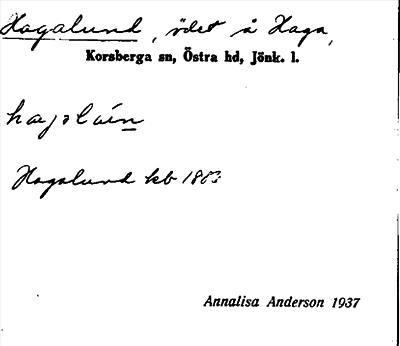 Hagalund, ödet å Haga,
Korsberga sn, Östra hd, Jönk. l.
Hagalund kb
Annalisa Anderson 1937